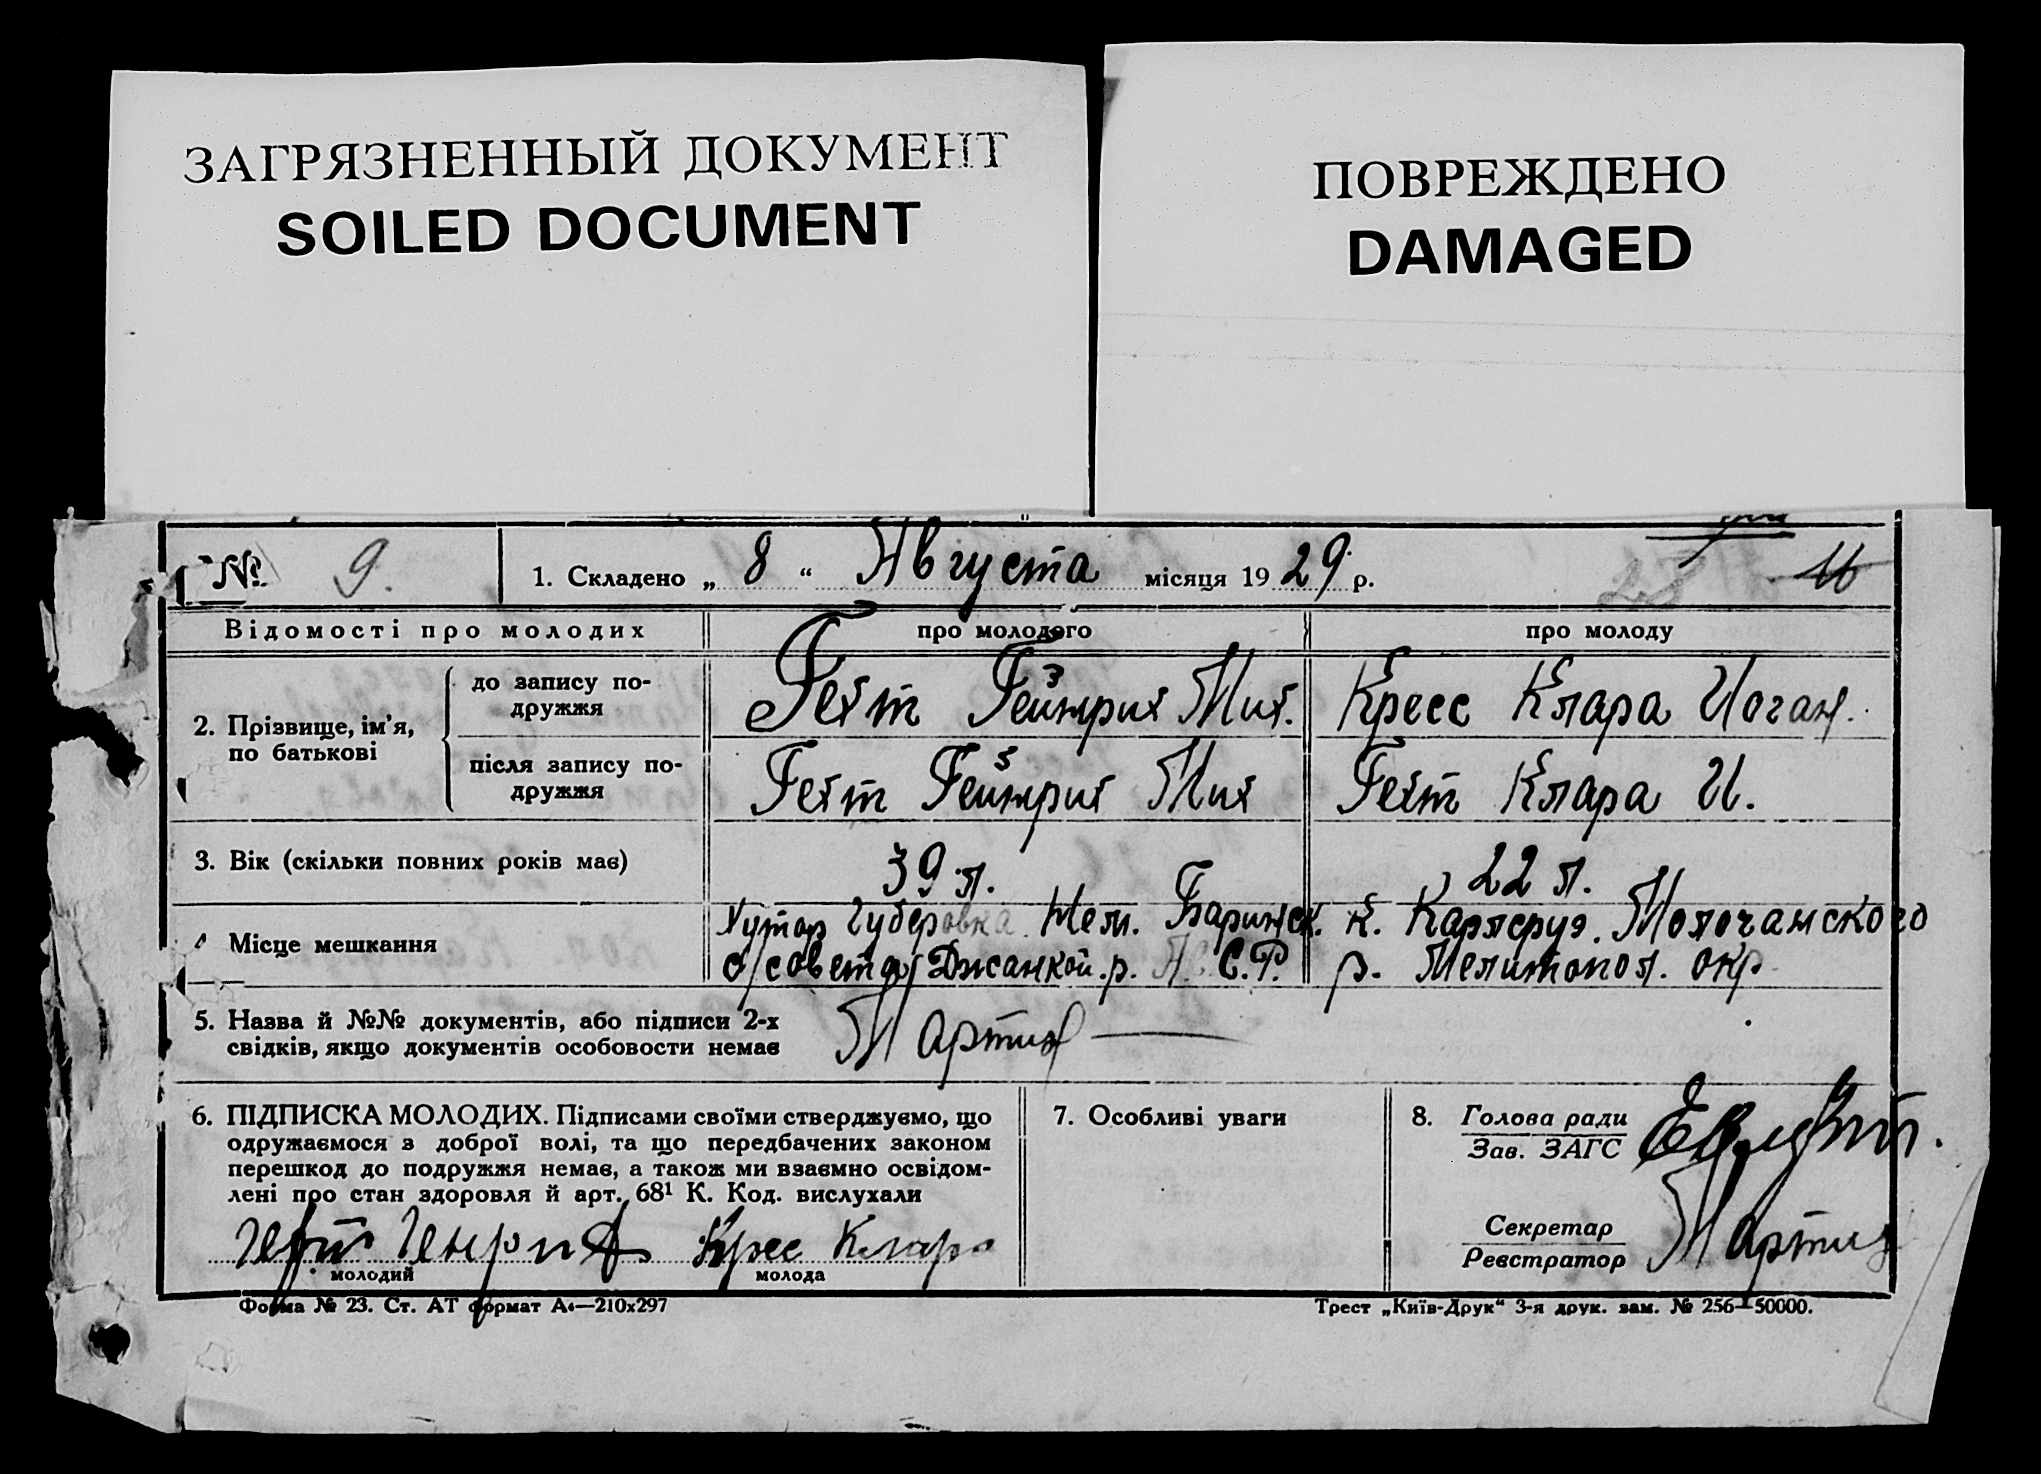 ЗАГРЯЗНЕННЫЙ ДОКУМЕНТ
SOILED DOCUMENT
ПОВРЕЖДЕНО
DAMAGED
№ 9. 1. Складено „ 8 “ Августа місяця 19 29 р. 16
Відомості про молодих про молодого про молоду
2. Прізвище, ім'я, по батькові
до запису подружжя Гехт Гейнрих Мих. Кресс Клара Иоган.
після запису подружжя Гехт Гейнрих Мих Гехт Клара И.
3. Вік (скільки повних років має) 39 л. 22 л.
4 Місце мешкання Хутор Губеровка Нем. Баринск. к. Карлсруэ. Молочанского
с/совета Джанкой. р. А. С.С.Р. р. Мелитопол. окр
5. Назва й №№ документів, або підписи 2-х
свідків, якщо документів особовости немає
6. ПІДПИСКА МОЛОДИХ. Підписами своїми стверджуємо, що
одружаємося з доброї волі, та що передбачених законом
перешкод до подружжя немає, а також ми взаємно освідом-
лені про стан здоровля й арт. 68¹ К. Код. вислухали
Генрих Крес Клара
молодий молода
7. Особливі уваги
8. Голова ради
Зав. ЗАГС
Секретар
Реєстратор
Форма № 23. Ст. АТ формат А4—210x297
Трест „Київ-Друк“ 3-я друк. зам. № 256—50000.